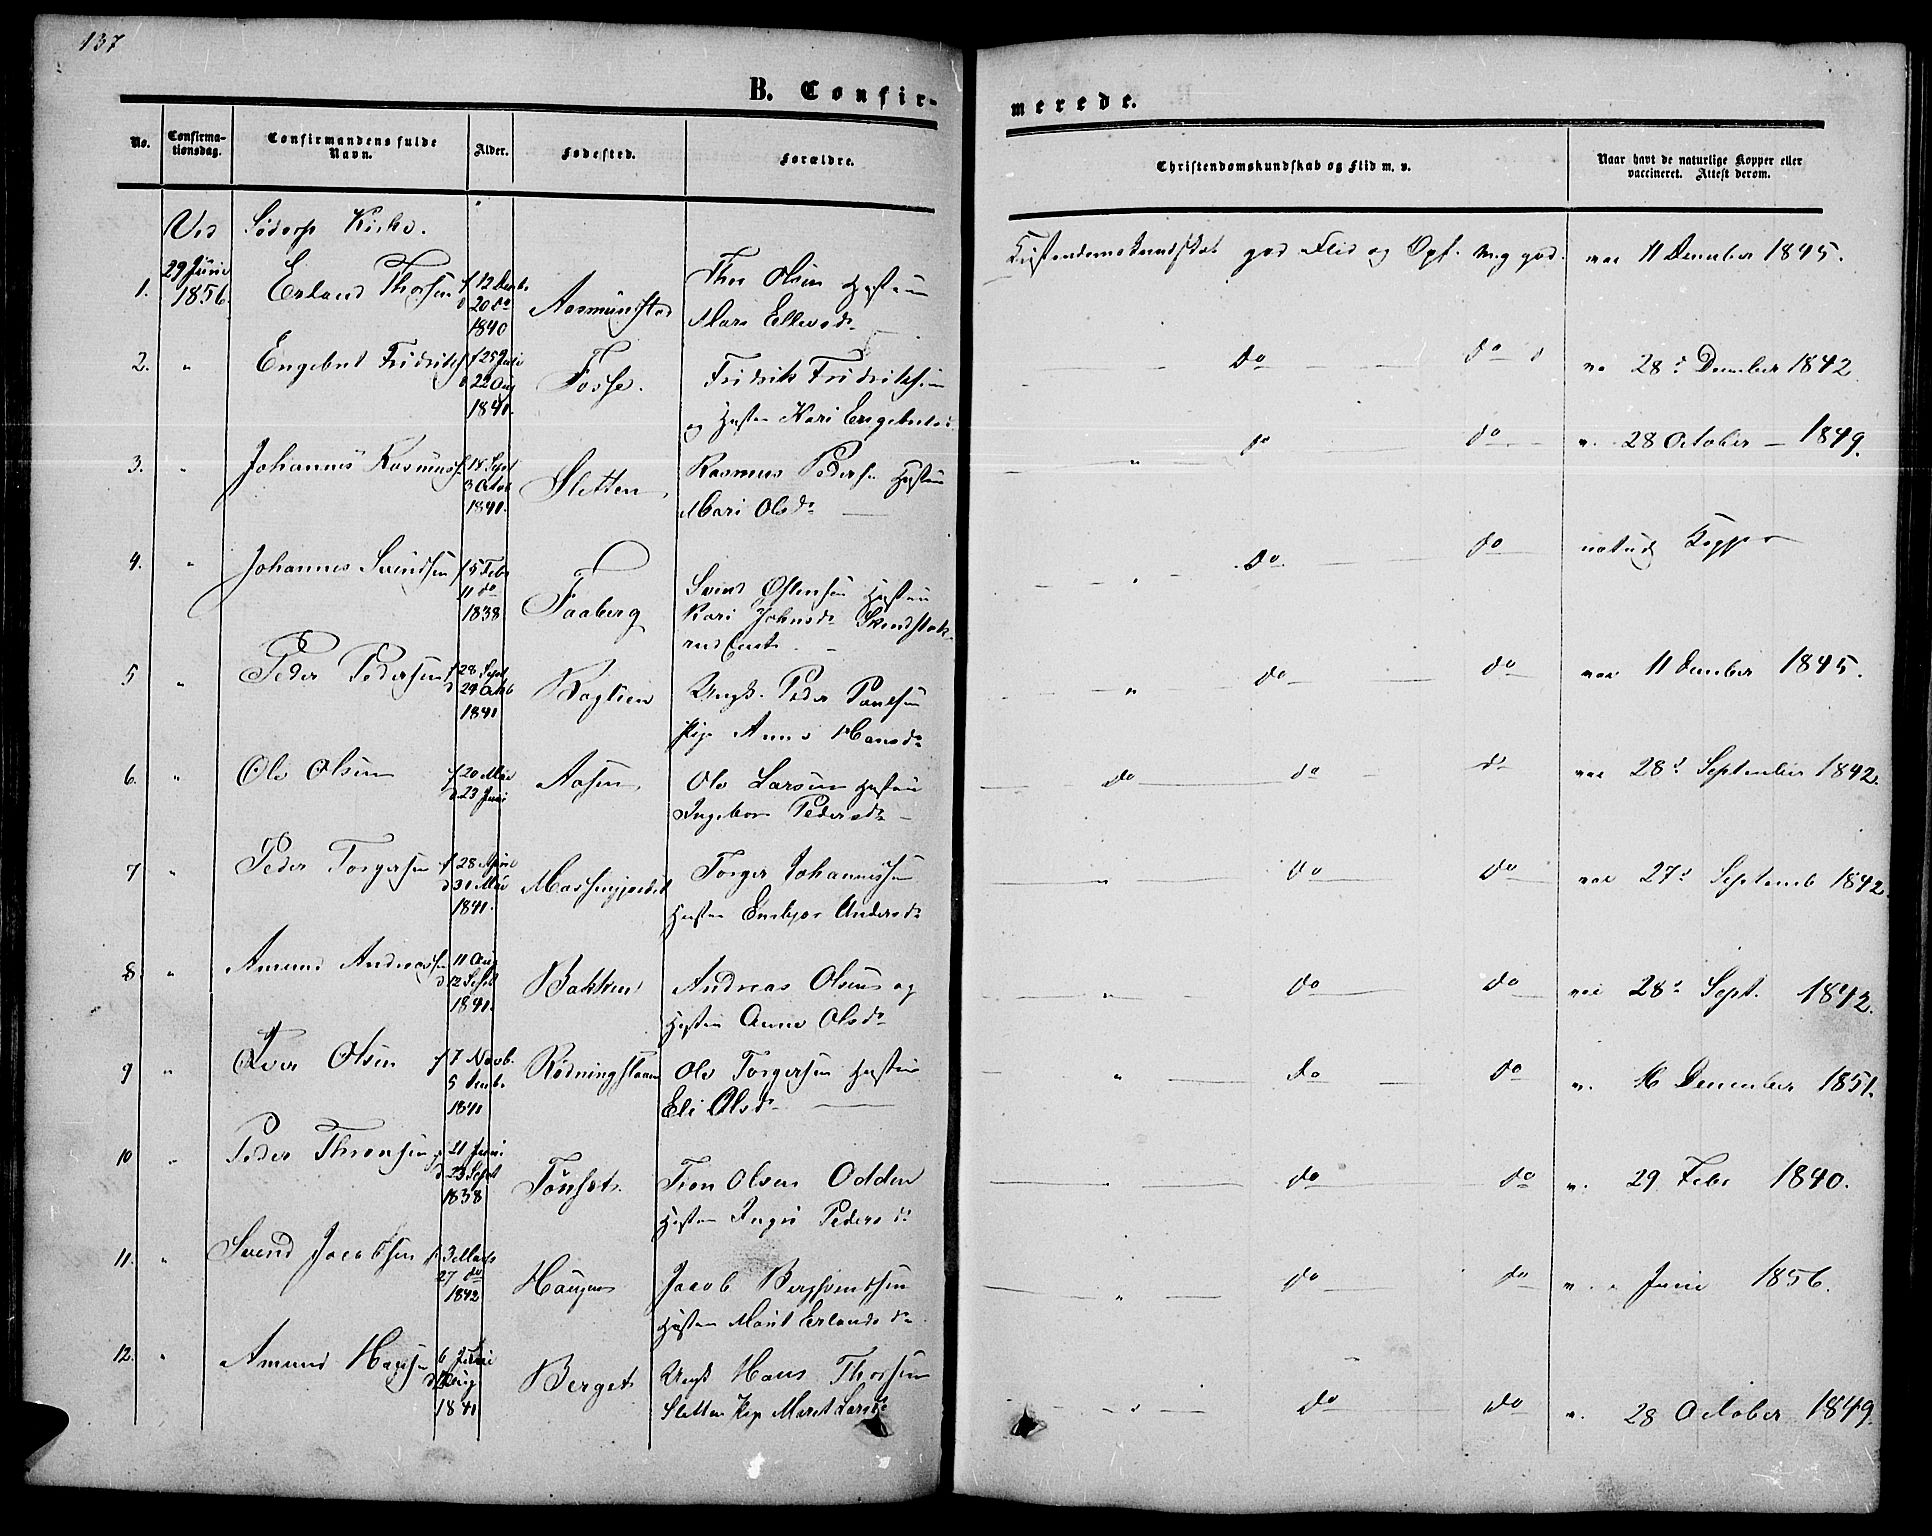 137
B. Confir-
merede.
No.
Confirma-
tionsdag.
Confirmandens fulde
Navn.
Alder.
Fødested.
Forældre.
Christendomskundskab og Flid m. v.
Naar havt de naturlige Kopper eller
vaccineret. Attest derom.
Ved Södorp Kirke.
1. 29 Juni 1856. Erland Thorsen f 12 Decbr d 20 do 1840 Aasmundstad Thor Olsen Hustru
Mari Ellevsdr
Kristendomskundskab god Flid og Opf. meg god. vac 11 December 1845.
2. " Engebret Fridriks f 25 Juli d 22 Aug 1841. Fosse. Fridrik Fridriksen
og Hustru Kari Engebretsd.
do do vac 28d December 1842.
3. " Johannes Rasmuss f 14 Sept 3 Octob 1841. Sletten Rasmus Pedersen Hustru
Mari Olsdr
" do do v. 28 October 1849.
4. " Johannes Svendsen f 5 Febr 11 do 1838. Faaberg Svend Østensen Hustru
Kari Johnsdr
" do do naturl Kopper
5 " Peder Pedersen f 28 Sept d 24 Octb 1841 Ungk. Peder Poulsen
Pige Anne Hansdr
" do do vac 11 December 1845.
6. " Ole Olsen f 20 Mai d 23 Juni Aasen Ole Larsen Hustru
Ingebor Pedersdr
do do do vac 28d September 1842.
7 " Peder Torgersen f 28 April d 31 Mai 1841. Torger Johannessen
Hustru Embjør Andersdr
" do do vac 27d Septemb 1842.
8. " Amund Andreassen 11 Aug d 12 Sept 1841. Bakken Andreas Olsen og
Hustru Anne Olsdr
" do do vac 28d Sept. 1842.
9 " Iver Olsen f 7 Novb. 5 Decbr 1841 Rødningslaaen Ole Torgersen Hustru
Eli Olsdr
" do do v. 16 December 1851.
10 " Peder Thronsen f 21 Juni d 23 Sept 1838 Tönset. Tron Olsen Odden
Hustru Inger Pedersdr
" do do v. 29 Febr 1840.
11. " Svend Jacobsen f 3 Marts 27 do 1842 Haugen Jacob Bergsvendsen
Hustru Marit Erlandsdr.
" do do v. " Juni 1856.
12. " Amund Hansen 6 Juni d Aug 1841 Berget Ungk Hans Thorsen
Sletten Pige Marit Larsdr
" do do v. 28 October 1849.